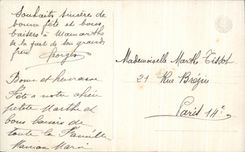 Souhaits sincère de
bonne fête et bons
baisers à Mamarthe
de la part de son grand
frère Georges
Bonne et heureuse
Fête à notre chère
petite Marthe et
bons baisers de
toute la Famille
Maman Marie
Mademoiselle Marthe Tissot
21 Rue Brézin
Paris 14e